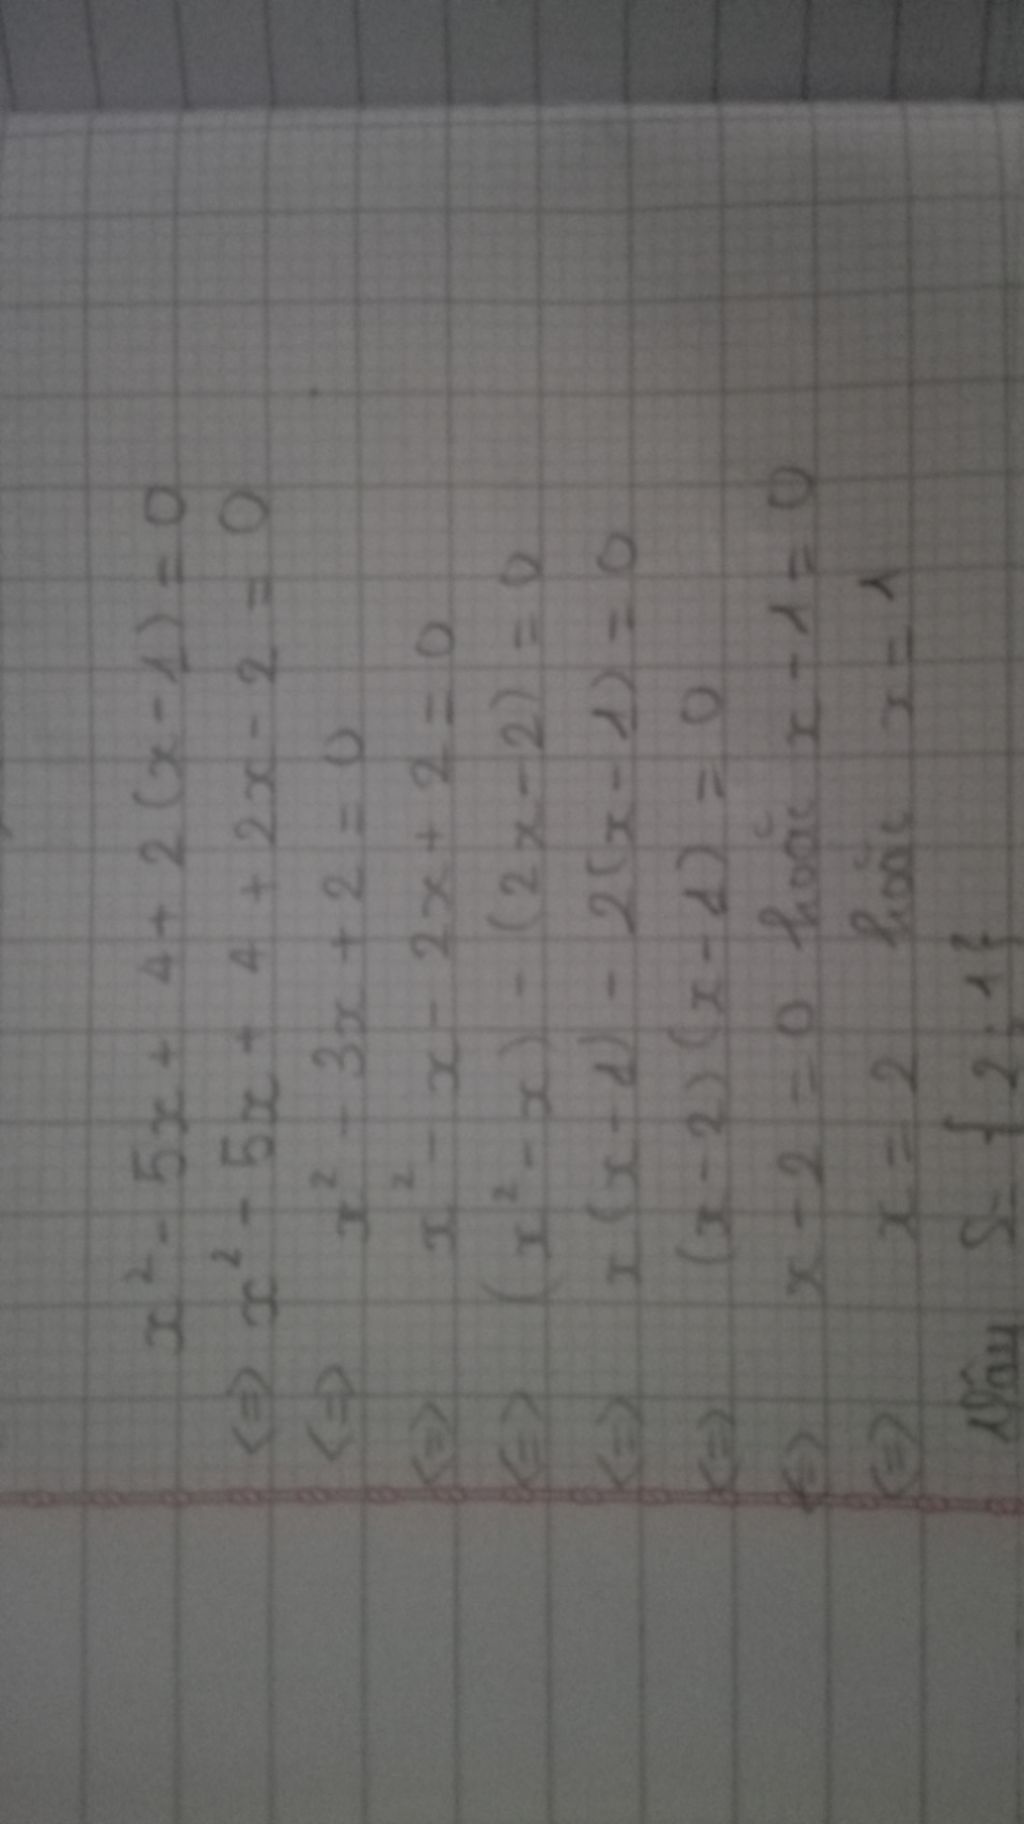 x² - 5x + 4 + 2(x - 1) = 0
<=> x² - 5x + 4 + 2x - 2 = 0
<=> x² - 3x + 2 = 0
<=> x² - x - 2x + 2 = 0
<=> (x² - x) - (2x - 2) = 0
<=> x(x - 1) - 2(x - 1) = 0
<=> (x - 2)(x - 1) = 0
<=> x - 2 = 0 hoặc x - 1 = 0
<=> x = 2 hoặc x = 1
Vậy S = { 2; 1 }